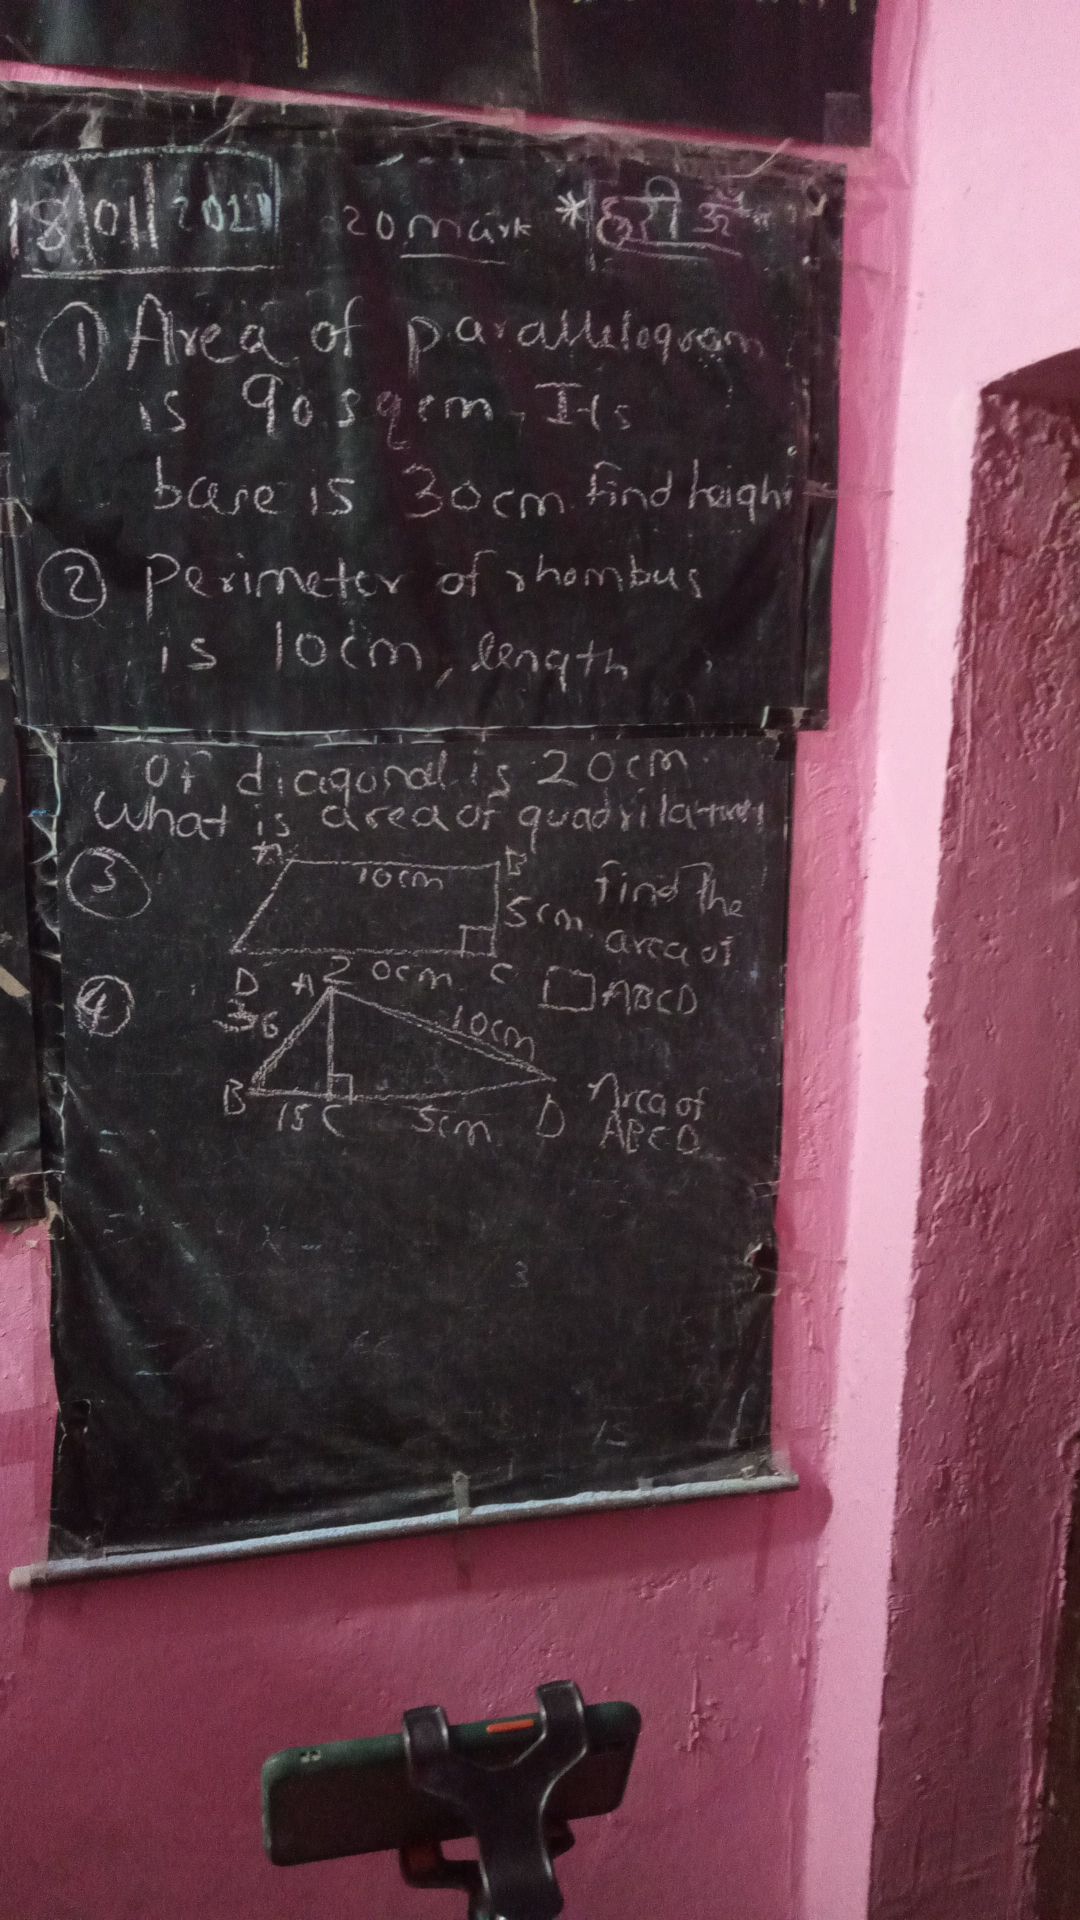 18/01/2021 20 mark * हरी ॐ
① Area of parallelogram
is 90 sqcm, Its
base is 30cm find height
② Perimeter of rhombus
is 10cm, length
of diagonal is 20cm.
What is area of
③ A 10cm B
5cm find the
area of
D 20cm C □ABCD
④ A
10cm
B 15 C 5cm D Area of
ABCD